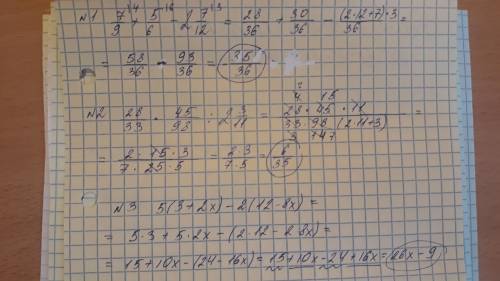 №1 7/9 + 5/6 - 2 7/12 = 28/36 + 30/36 - (2·12+7)·3/36 =
= 58/36 - 93/36 = 35/36
№2 28/33 · 45/98 : 2 3/11 = 28·45·11/33·98·(2·11+3) =
= 2·15·3/7·25·5 = 2·3/7·5 = 6/35
№3 5(3+2x)-2(12-8x)=
= 5·3+5·2x-(2·12-2·8x)=
= 15+10x-(24-16x)= 15+10x-24+16x= 26x-9